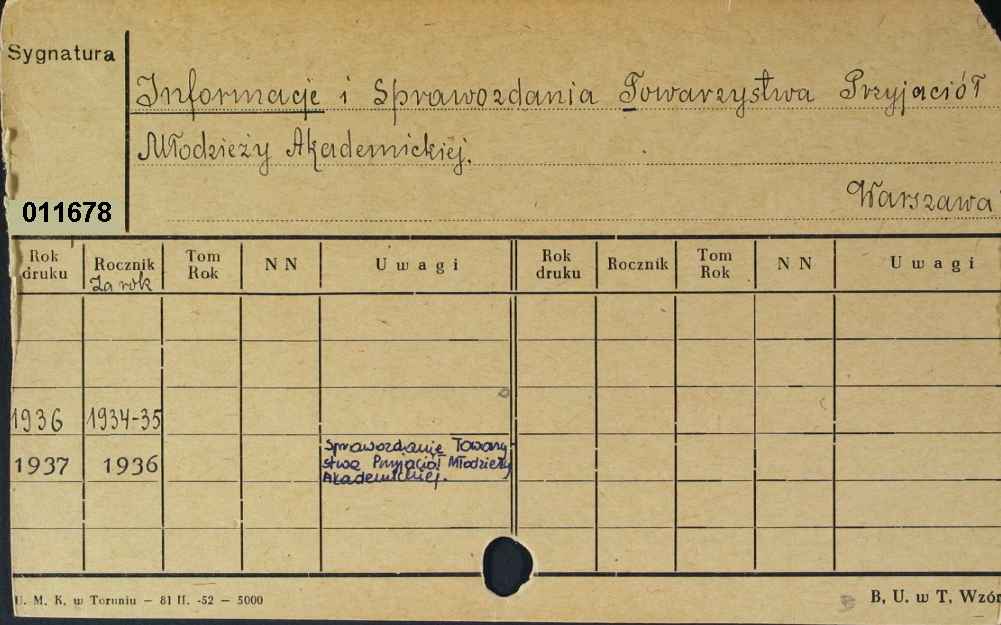 Sygnatura
Informacje i Sprawozdania Towarzystwa Przyjaciół
Młodzieży Akademickiej.
Warszawa
011678
Rok druku Rocznik Tom Rok N N U w a g i Rok druku Rocznik Tom Rok N N U w a g i
Za rok
1936 1934-35
1937 1936 Sprawozdanie Towarzy-
stwa Przyjaciół Młodzieży
Akademickiej.
U. M. K. w Toruniu — 81 II. -52 — 5000
B. U. w T. Wzór